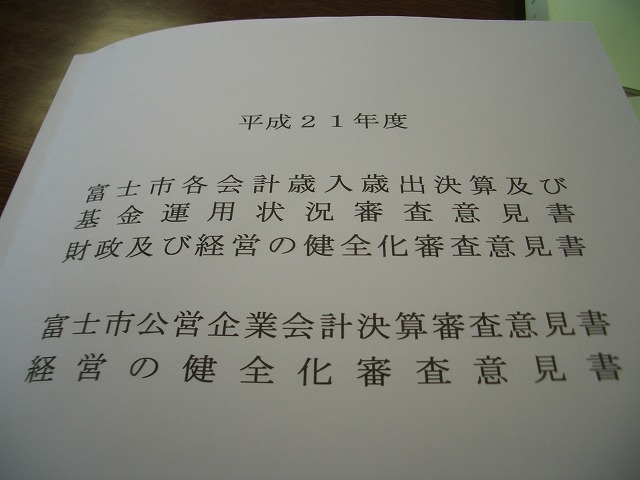 平成２１年度
富士市各会計歳入歳出決算及び
基金運用状況審査意見書
財政及び経営の健全化審査意見書
富士市公営企業会計決算審査意見書
経営の健全化審査意見書